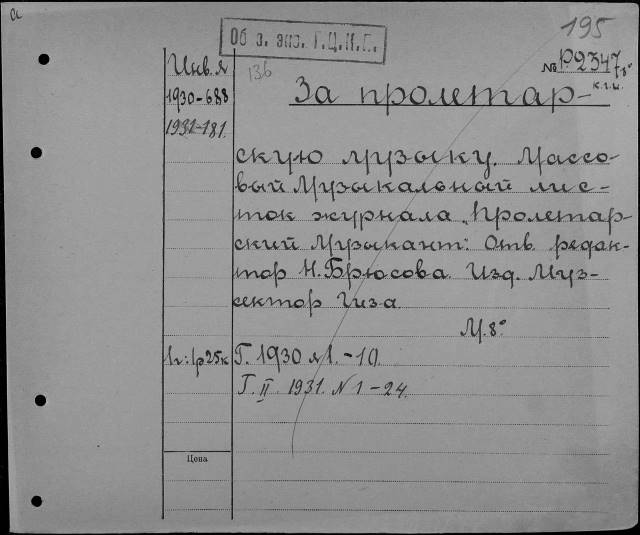 а
195
Об з. экз. Г.Ц.К.П.
136
№ Р2347/8°
к.г.и.
Инв. №
1930-688
1931-181.
За пролетар-
скую музыку. Массо-
вый Музыкальный лис-
ток журнала „Пролетар-
ский Музыкант". Отв. редак-
тор Н. Брюсова. Изд. Муз-
сектор Гиза.
М. 8°
1 г: 1 р 25 к
Г. 1930 № 1.-10.
Г. II. 1931. N 1-24.
Цена